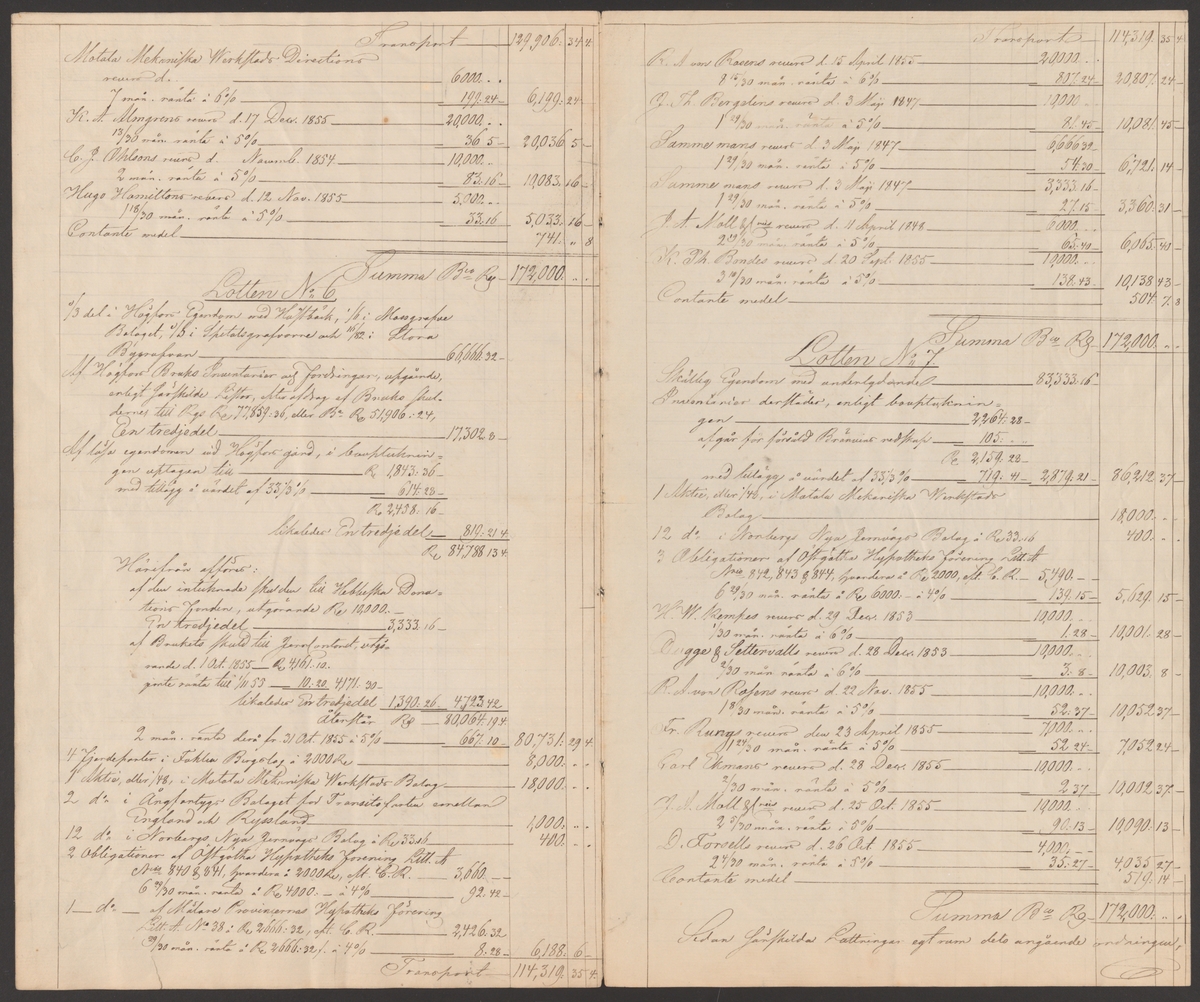 Transport 129,906. 34 4.
Motala Mekaniska Werkstads Directions
revers d. 6000. . .
7 mån. ränta à 6% 199. 24 6,199. 24
K. A. Almgrens revers d. 17 Dec. 1855 20,000. . .
13/30 mån. ränta à 5% 36. 5 20,036. 5
C. J. Ohlsons revers d. Novemb. 1854. 10,000. . .
2 mån. ränta à 5% 83. 16 10,083. 16
Hugo Hamiltons revers d. 12 Nov. 1855 5,000. . .
1 18/30 mån. ränta à 5% 33. 16 5,033. 16
Contante medel 741. „ 8
Summa Bco Rd 172,000. . .
Lotten No 6
1/3 del i Högfors Egendom med
Bolaget, och i Stora
66,666. 32
Af Högfors Bruks Inventarier och fordringar, uppgående,
enligt särskilde Listor, efter afdrag af Bruks skul-
derne till Rgs Rd 77,859: 36, eller Bco Rd 51,906: 24,
En tredjedel 17,302. 8
Af lösa egendomen vid Högfors gård, i bouptecknin-
gen uptagen till Rd 1,843: 36
med tillägg i värdet af 33 1/3% 614. 28
Rd 2,458. 16
likaledes En tredjedel 819: 21 4
Rd 84,788. 13 4
Härefrån afföres:
af den intecknade skulden till Dona-
tions fonden, utgörande Rd 10,000.
En tredjedel 3,333. 16
af Brukets skuld till Jerncontoret, utgö-
rande d. 1 Oct. 1855 Rd 4161. 10.
ränta till 10. 20. 4171. 30
likaledes En tredjedel 1,390. 26 4,723. 42
återstår Rd 80,064. 19 4
2 mån. ränta derå fr 31 Oct. 1855 à 5% 667. 10 80,731. 29 4
4 fjerdeparter i Bergslag, à 2000 Rd 8,000. . .
1 Aktie, eller 1/48, i Motala Mekaniska Werkstads Bolag 18,000. . .
2 do i Ångfartygs Bolaget för Transitofarten emellan
England och Ryssland 1,000. . .
12 do i Norbergs Nya Jernvägs Bolag à Rd 33. 16 400. . .
2 Obligationer af Östgötha Hypotheks förening Litt. A
Nris 840 & 841, hvardera à 2000 Rd, eft. C. R. 3,660.
6 29/30 mån. ränta à Rd 4000. à 4% 92. 42
1 do af Mälare Provincernas Hypotheks förening
Litt. A. No 38 à Rd 2666: 32, eft. C. R. 2,426. 32
29/30 mån. ränta à Rd 2666: 32. à 4% 8. 28 6,188. 6
Transport 114,319. 35 4.
Transport 114,319. 35 4.
R. A. von Rosens revers d. 15 April 1855 20,000. . .
8 mån. ränta à 6% 807. 24 20,807. 24
J. Th. Bergelens revers d. 3 Maji 1847 10,000
1 29/30 mån. ränta à 5% 81. 45 10,081. 45
Samme mans revers d. 3 Maji 1847 6,666. 32
1 29/30 mån. ränta à 5% 54. 30 6,721. 14
Samme mans revers d. 3 Maji 1847 3,333. 16
1 29/30 mån. ränta à 5% 27. 15 3,360. 31
J. A. Moll & revers d. 11 April 1848 6000
mån. ränta à 5% 65. 40 6,065. 40
K. Ph. Brndes revers d. 20 Sept. 1855 10,000.
3 10/30 mån. ränta à 5% 138. 43 10,138. 43
Contante medel 504. 7. 8
Summa Bco Rd 172,000. . .
Lotten No 7
Egendom med underlydande 83,333. 16
Inventarier derstädes, enligt bouptecknin-
gen 2,264. 28
afgår för försåld Brännvins redskap 105. . .
Rd 2,159. 28
med tillägg i värdet af 33 1/3% 719. 41 2,879. 21 86,212. 37
1 Aktie, eller 1/48, i Motala Mekaniska Werkstads
Bolag 18,000. . .
12 do i Norbergs Nya Jernvägs Bolag à Rd 33. 16 400. . .
3 Obligationer af Östgötha Hypotheks förening Litt. A
Nris 842, 843 & 844, hvardera à Rd 2000, eft. C. R. 5,490.
6 29/30 mån. ränta à Rd 6000. à 4% 139. 15 5,629. 15
W. Kempes revers d. 29 Dec. 1853 10,000.
1/30 mån. ränta à 6% 1. 28 10,001. 28
Dugge & Settervalls revers d. 28 Dec. 1853 10,000.
2/30 mån. ränta à 6% 3. 8 10,003. 8
R. A. von Rosens revers d. 22 Nov. 1855 10,000.
1 8/30 mån. ränta à 5% 52. 37 10,052. 37
Fr. Rungs revers den 23 April 1855 7,000.
mån. ränta à 5% 52. 24 7,052. 24
Carl Ekmans revers d. 28 Dec. 1855 10,000.
2/30 mån. ränta à 5% 2. 37 10,002. 37
J. A. Moll & revers d. 25 Oct. 1855 10,000.
2 5/30 mån. ränta à 5% 90. 13 10,090. 13
D. Forsells revers d. 26 Oct. 1855 4,000.
2 4/30 mån. ränta à 5% 35. 27 4,035. 27
Contante medel 519. 14
Summa Bco Rd 172,000. . .
Sedan särskilda Lottningar egt rum dels angående ordningen,